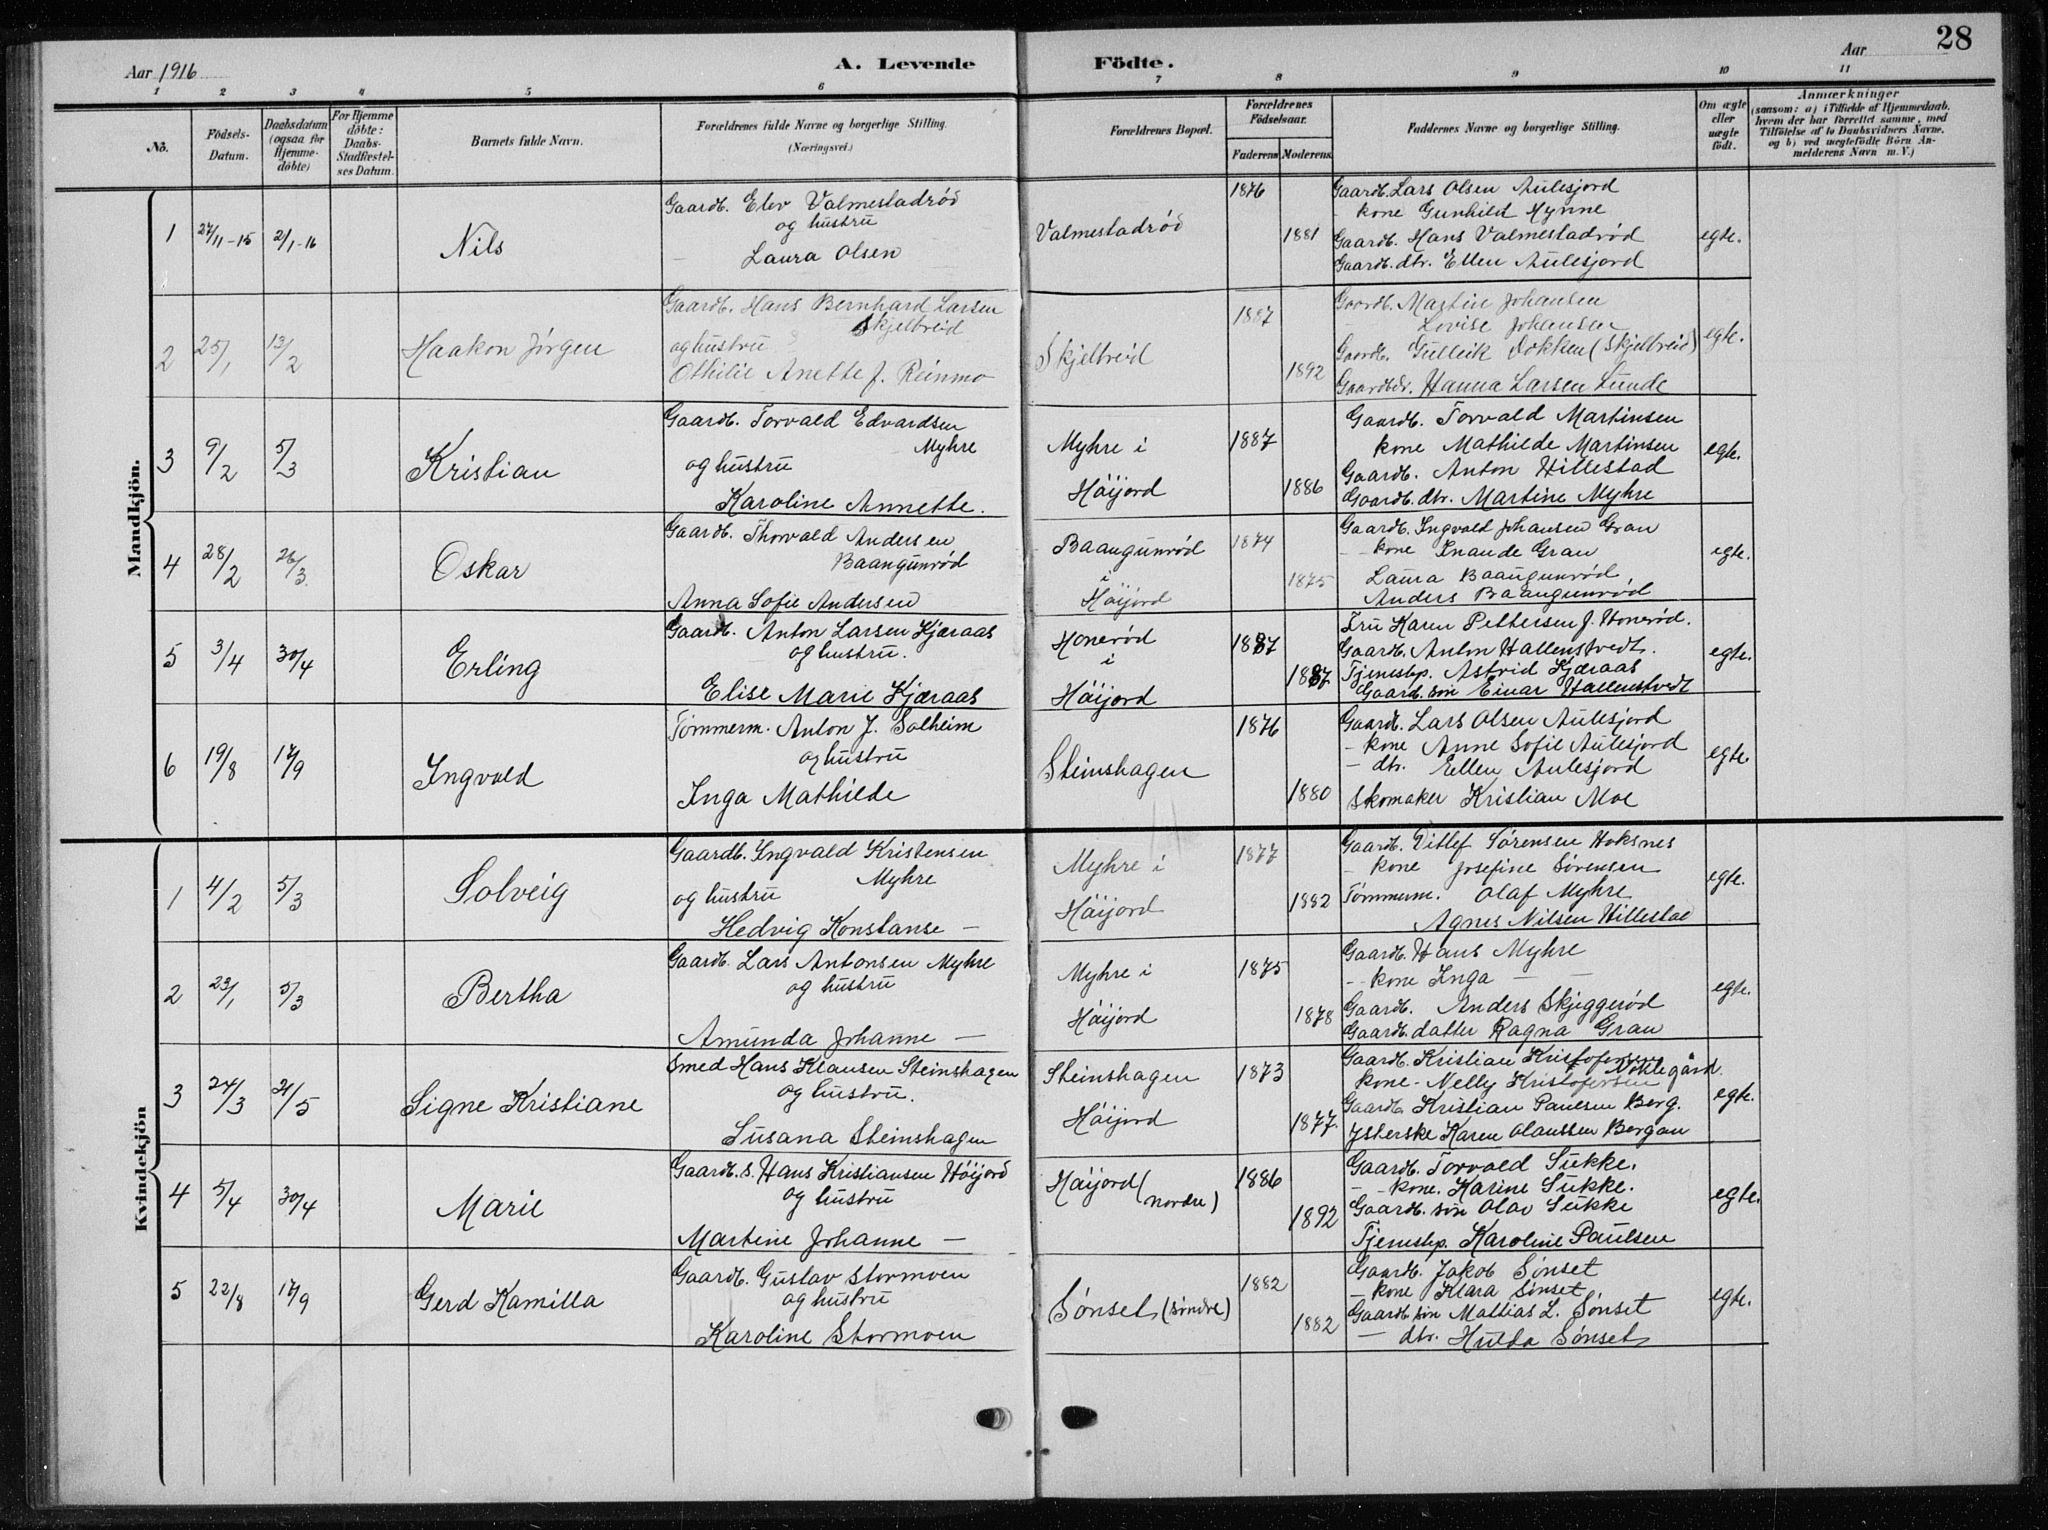 28
Aar 1916
A. Levende Födte.
Aar
1 2 3 4 5 6 7 8 9 10 11
No.
Födsels-Datum.
Daabsdatum (ogsaa for Hjemme-döbte)
For Hjemme döbte: Daabs-Stadfæstel-ses Datum.
Barnets fulde Navn.
Forældrenes fulde Navne og borgerlige Stilling. (Næringsvei.)
Forældrenes Bopæl.
Forældrenes Födselsaar.
Faderens Moderens.
Faddernes Navne og borgerlige Stilling.
Om ægte eller uægte födt.
Anmærkninger
(saasom: a) i Tilfælde af Hjemmedaab,
hvem der har forrettet samme, med
Tilföielse af to Daabsvidners Navne,
og b) ved uægtefödte Börn An-
melderens Navn m. V.)
Mandkjön.
1 27/11-15 2/1-16 Nils
Gaardb. Elev Valmestadrød
og hustru
Laura Olsen
Valmestadrød
1876
1881
Gaardb. Lars Olsen Aulesjord
- kone Gunhild Mynne
Gaardb. Hans Valmestadrød
Gaardb. dtr. Ellen Aulesjord
egte.
2 25/1 13/2 Haakon Jørgen
Gaardb. Hans Bernhard Larsen
Skjelbreid
og hustru
Othilie Anette J. Reinmo
Skjelbreid
1887
1892
Gaardb. Martin Johansen
Lovise Johansen
Gaardb. Gullik Dokken (Skjelbreid)
Gaardbdr. Hanna Larsen Lunde
egte.
3 9/2 5/3 Kristian
Gaardb. Torvald Edvardsen
Myhre
og hustru
Karoline Annette.
Myhre i
Høijord
1887
1886
Gaardb. Torvald Martinsen
kone Mathilde Martinsen
Gaardb. Anton Hillestad
Gaardb. dtr. Martine Myhre
egte.
4 28/2 26/3. Oskar
Gaardb. Thorvald Andersen
Baangunrød
Anna Sofie Andersen
Baangunrød
i
Høijord
1874
1875
Gaardb. Ingvald Johansen Gran
- - kone Inande Gran
Laura Baangunrød
Anders Baangunrød
egte.
5 3/4 30/4 Erling
Gaardb. Anton Larsen Kjæraas
og hustru.
Elise Marie Kjæraas
Honerød
i
Høijord
1887
1887
Fru Karen Pettersen J. Honerød.
Gaardb. Anton Hallenstvedt.
Tjenestep. Astrid Kjæraas
Gaardb. søn Einar Hallenstvedt
egte.
6 19/8 17/9 Ingvald
Tømmerm. Anton J. Solheim
og hustru
Inga Mathilde
Steinshagen
1876
1880
Gaardb. Lars Olsen Aulesjord
- kone Anne Sofie Aulesjord
- dtr. Ellen Aulesjord
Skomaker Kristian Moe
egte.
Kvindekjön
1 4/2 5/3 Solveig
Gaardb. Ingvald Kristensen
Myhre
og hustru
Hedvig Konstanse -
Myhre i
Høijord
1877
1882
Gaardb. Ditlef Sørensen Hoksnes
- kone Josefine Sørensen
Tømmerm. Olaf Myhre
Agnes Nilsen Hillestad
egte.
2 23/1 5/3 Bertha
Gaardb. Lars Antonsen Myhre
og hustru
Amunda Johanne -
Myhre i
Høijord
1875
1878
Gaardb. Hans Myhre
- - kone Inga - -
Gaardb. Anders Skjeggerød
Gaardb. datter Ragna Gran
egte.
3 24/3 21/5 Signe Kristiane
Smed Hans Klausen Steinshagen
og hustru.
Susana Steinshagen
Steinshagen
Høijord
1873
1877.
Gaardb. Kristian Kristofersen Noklegård.
kone - Nelly Kristofersen
Gaardb. Kristian Paulsen Berg.
Ysterske Karen Olaussen Bergan
egte.
4 5/4 30/4 Marie
Gaardb. s. Hans Kristiansen Høijord
og hustru
Martine Johanne -
Høijord (nordre)
1886
1892
Gaardb. Torvald Sukke.
- - kone. Karine Sukke.
Gaardb. søn Olav Sukke
Tjenestep. Karoline Paulsen
egte.
5 22/8 17/9 Gerd Kamilla
Gaardb. Gustav Stormoen
og hustru
Karoline Stormoen
Sønset (søndre)
1882
1882
Gaardb. Jakob Sønset
- kone Klara Sønset
Gaardb søn Mathias L. Sønset
- dtr. Hulda Sønset
egte.